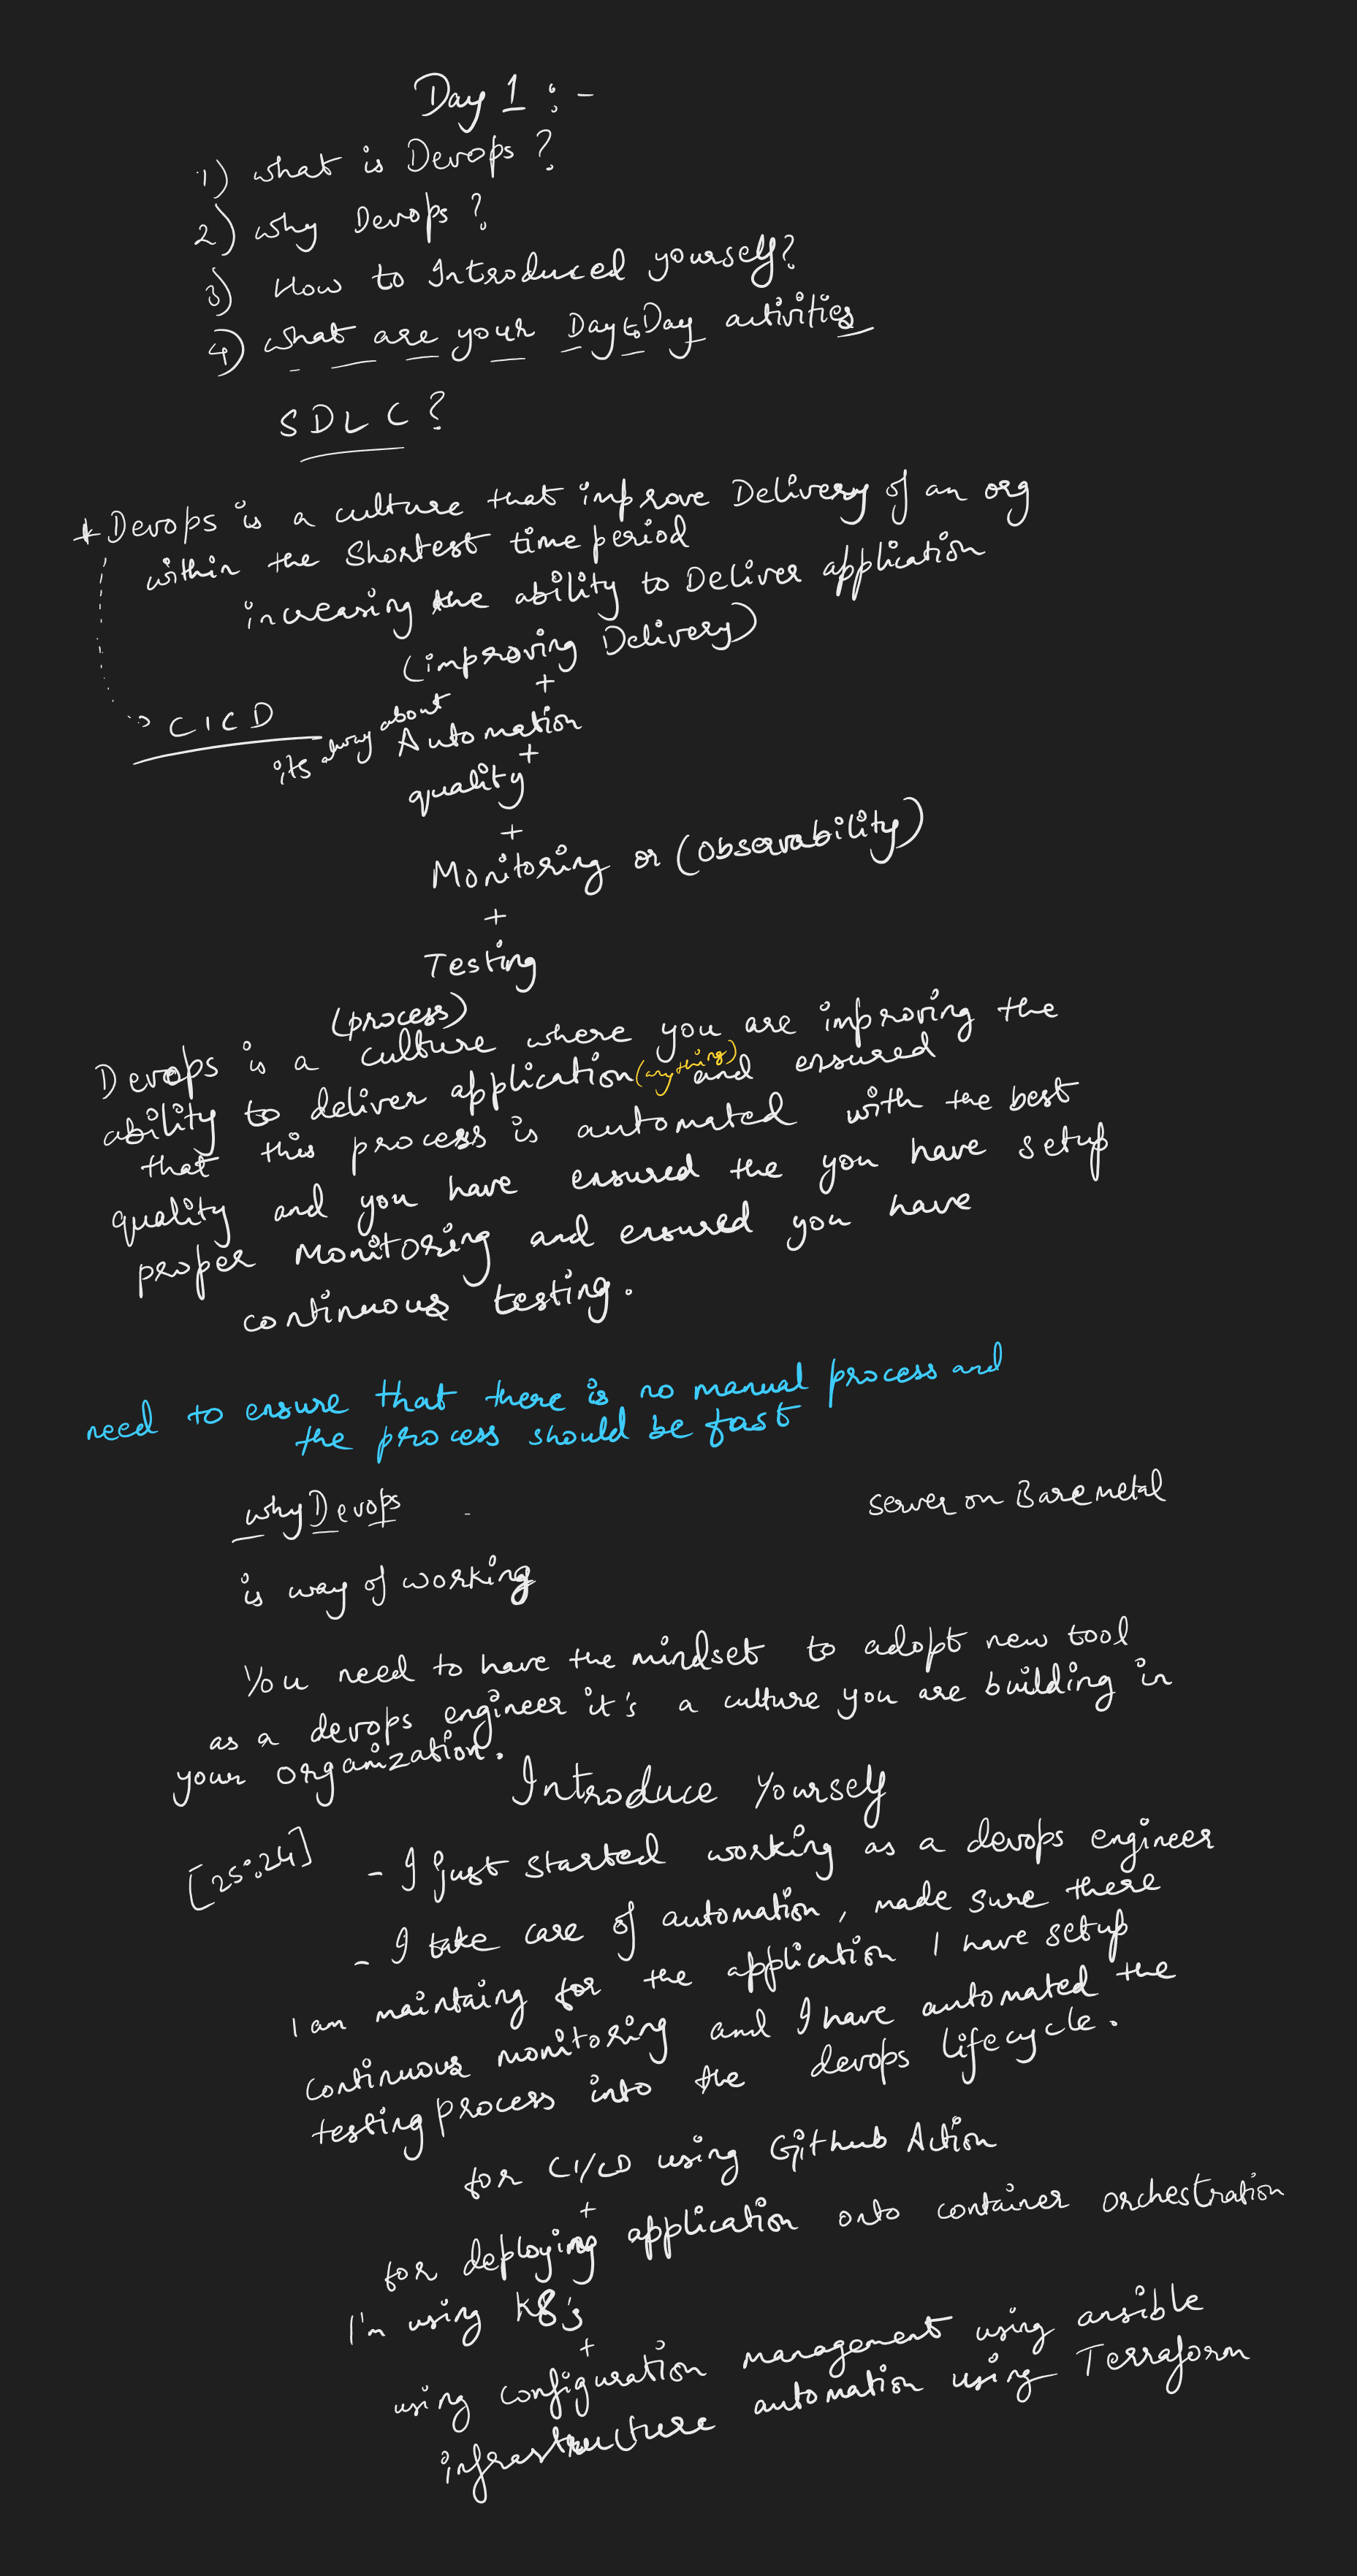 Day 1 : -
1) what is Devops ?
2) why Devops ?
3) How to Introduced yourself?
4) what are your Day to Day activities
SDLC ?
* Devops is a culture that improve Delivery of an org
within the shortest time period
increasing the ability to Deliver application
(improving Delivery)
+
CICD
its away about Automation
+
quality
+
Monitoring or (observability)
+
Testing
(process)
Devops is a culture where you are improving the
ability to deliver application (anything) and ensured
that this process is automated with the best
quality and you have ensured the you have setup
proper Monitoring and ensured you have
continuous testing.
need to ensure that there is no manual process and
the process should be fast
why Devops
server on Baremetal
is way of working
You need to have the mindset to adopt new tool
as a devops engineer it's a culture you are building in
your organization.
Introduce Yourself
[25:24]
- I just started working as a devops engineer
- I take care of automation, made sure there
I am maintaing for the application I have setup
continuous monitoring and I have automated the
testing process into the devops lifecycle.
for CI/CD using Github Action
+
for deploying application onto container orchestration
I'm using K8's
+
using configuration management using ansible
infrastructure automation using Terraform